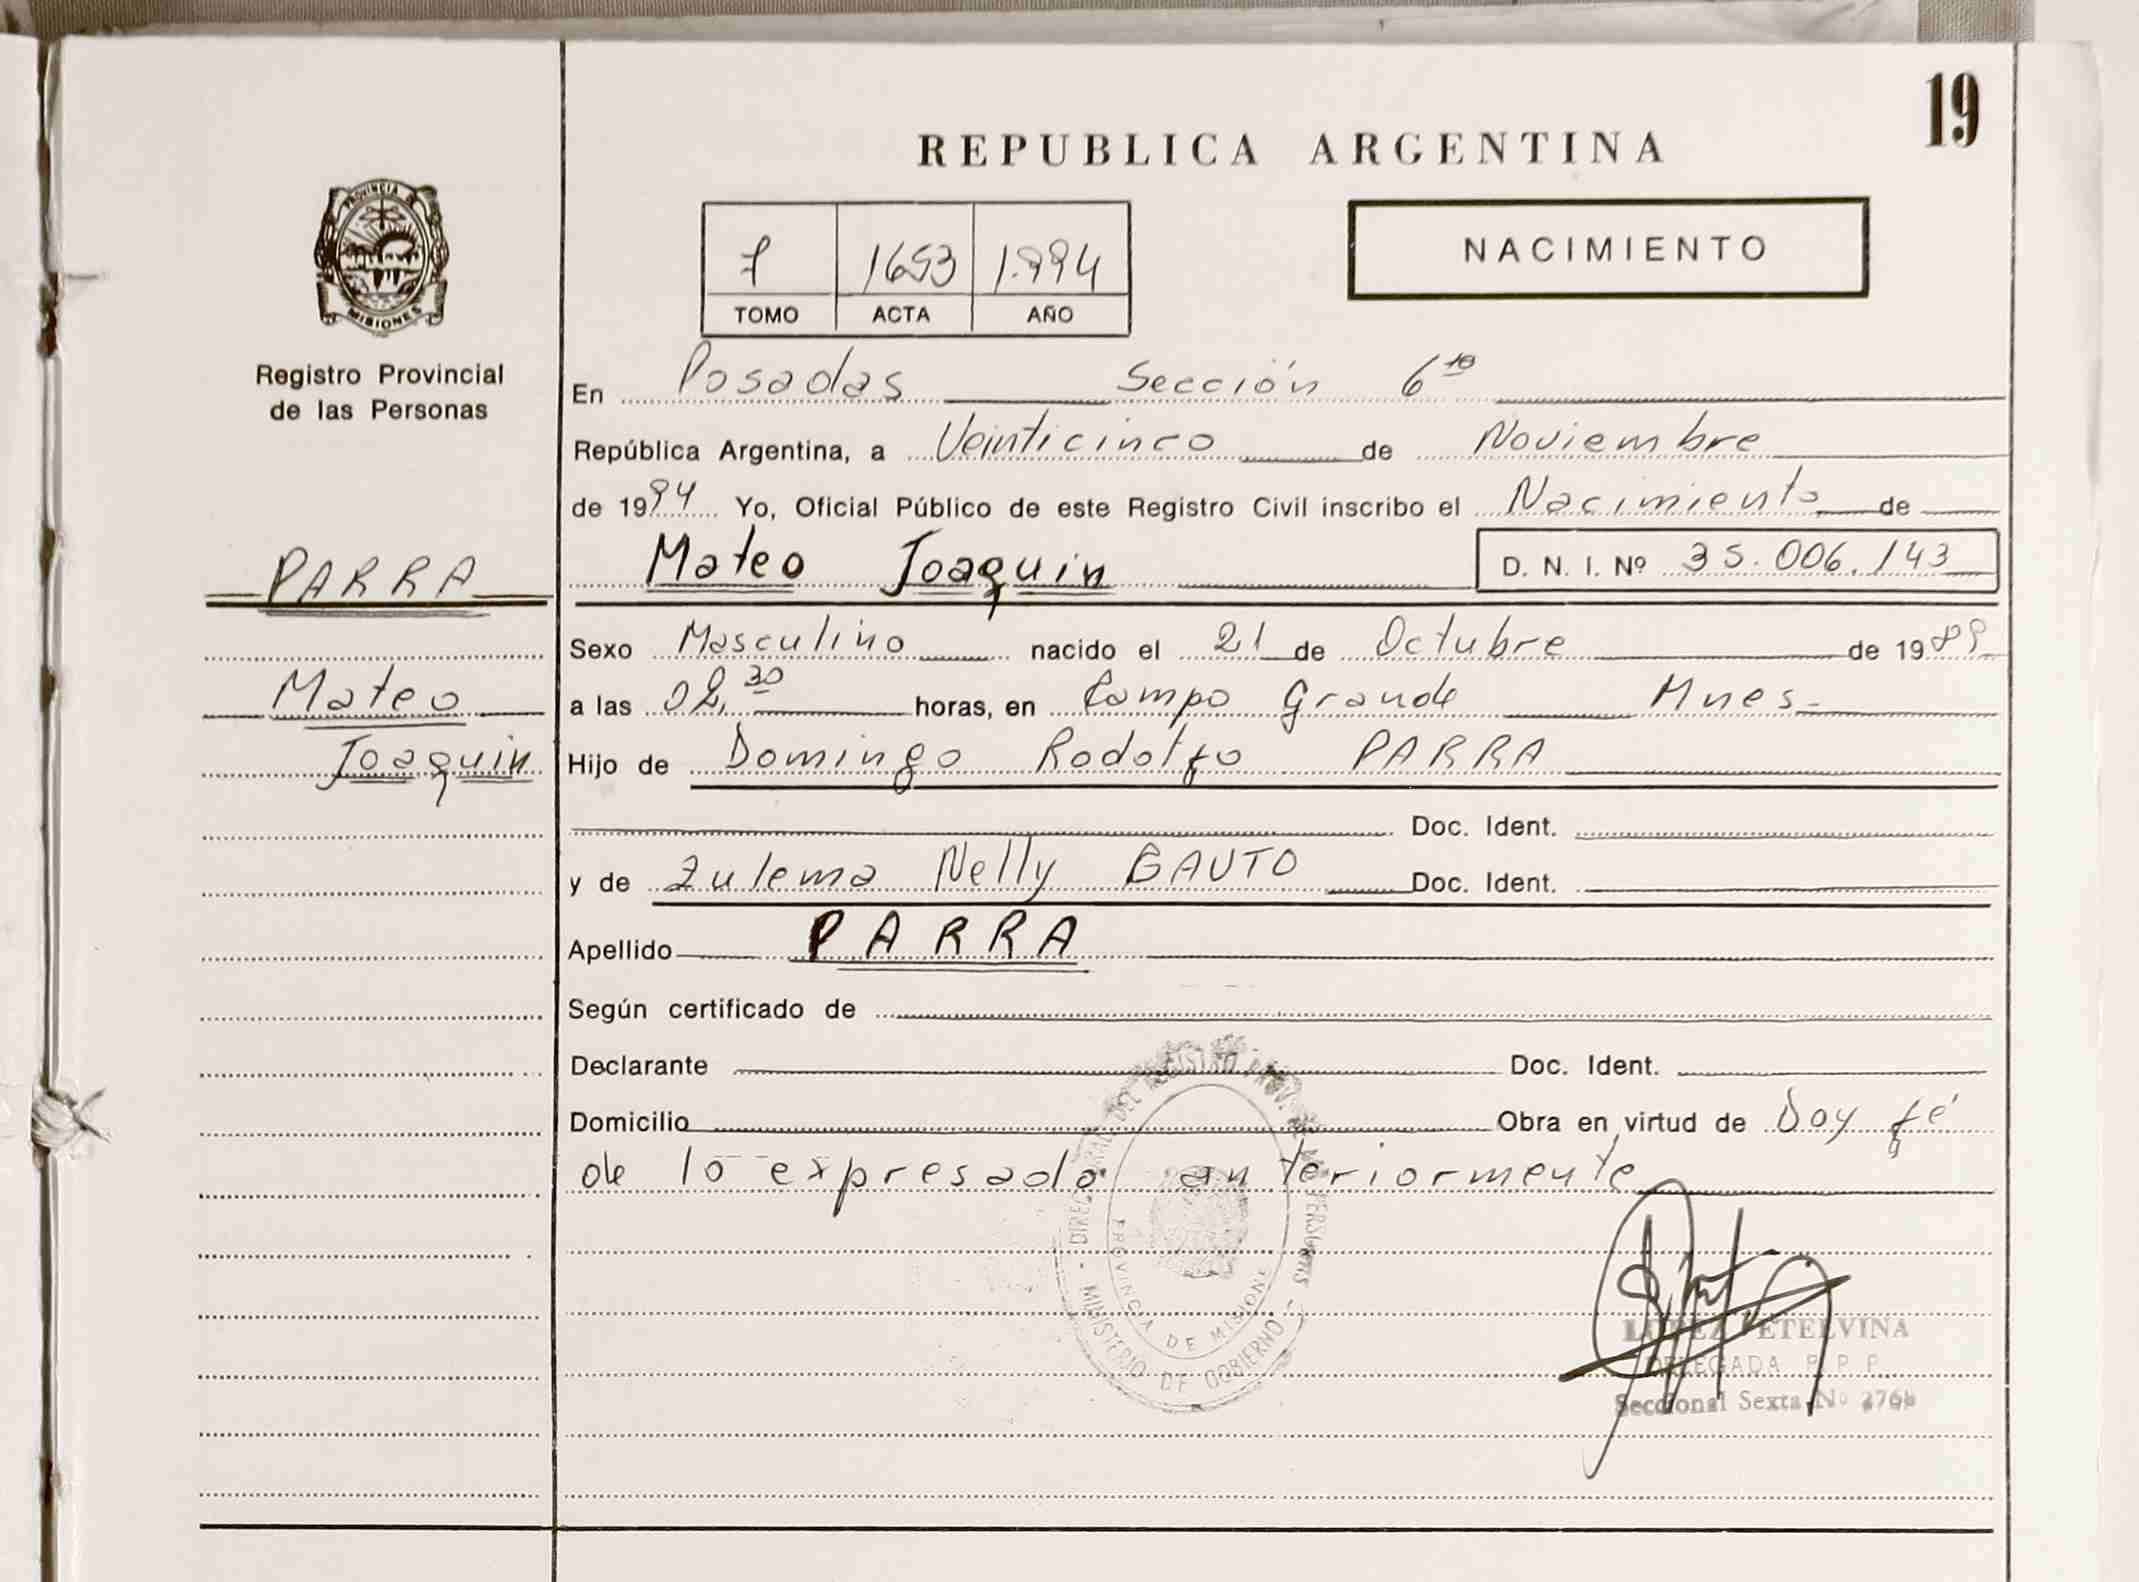 19
REPUBLICA ARGENTINA
PROVINCIA D
MISIONES
Registro Provincial
de las Personas
1653 1.994
TOMO ACTA AÑO
NACIMIENTO
En Posadas Sección 6ta
República Argentina, a Veinticinco de Noviembre
de 1994 Yo, Oficial Público de este Registro Civil inscribo el Nacimiento de
PARRA
Mateo Joaquin D. N. I. Nº 35.006.143
Sexo Masculino nacido el 21 de Octubre de 1989
Mateo
a las 02,30 horas, en Campo Grande Mnes-
Joaquin
Hijo de Domingo Rodolfo PARRA
Doc. Ident.
y de Zulema Nelly GAUTO Doc. Ident.
Apellido PARRA
Según certificado de
Declarante Doc. Ident.
Domicilio Obra en virtud de Doy fé
de lo expresado anteriormente
PROVINCIA DE MISIONE
MINISTERIO DE GOBIERNO
LOPEZ ETELVINA
DELEGADA R. P. P.
Seccional Sexta Nº